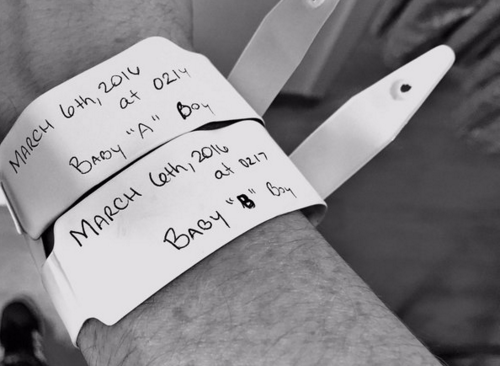 MARCH 6th, 2016
at 0214
BABY "A" Boy
MARCH 6th, 2016
at 0217
BABY "B" Boy